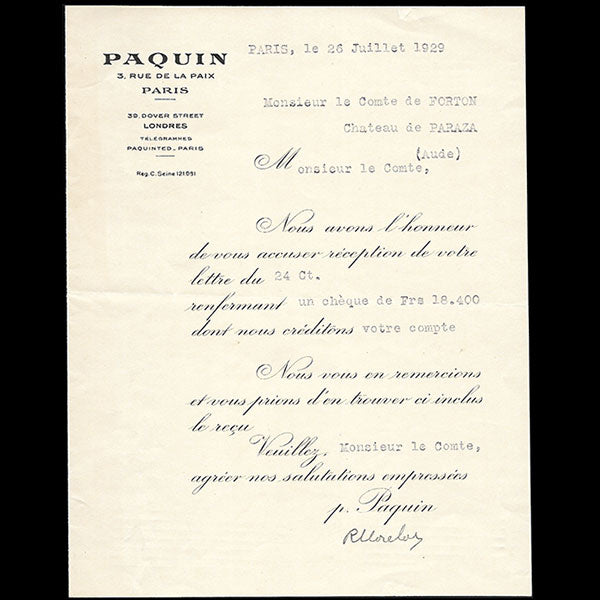 PAQUIN
3, RUE DE LA PAIX
PARIS
39, DOVER STREET
LONDRES
TÉLÉGRAMMES
PAQUINTED_PARIS
Reg. C. Seine 121.091
PARIS, le 26 Juillet 1929
Monsieur le Comte de FORTON
Chateau de PARAZA
(Aude)
Monsieur le Comte,
Nous avons l'honneur
de vous accuser réception de votre
lettre du 24 Ct.
renfermant un chèque de Frs 18.400
dont nous créditons votre compte
Nous vous en remercions
et vous prions d'en trouver ci inclus
le reçu
Veuillez, Monsieur le Comte,
agréer nos salutations empressées
p. Paquin